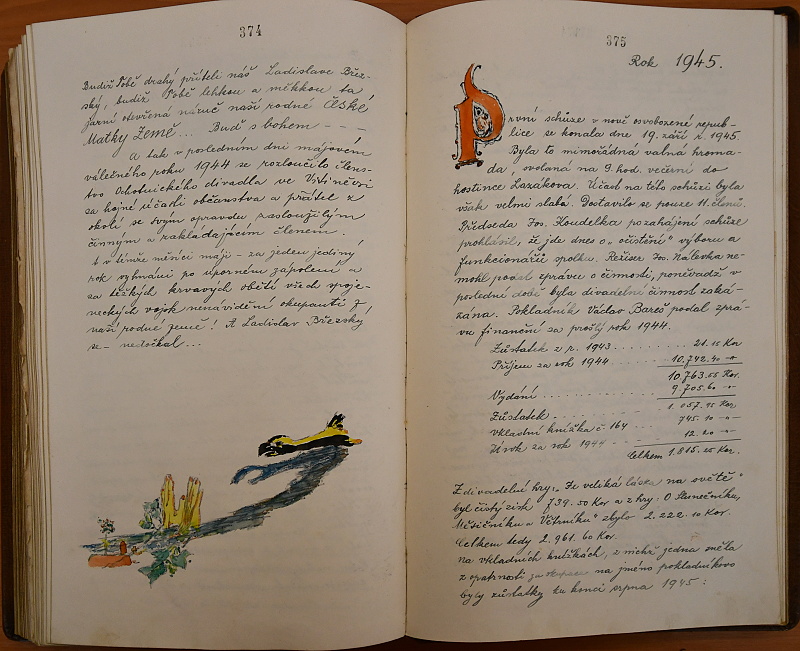 374
Budiž Tobě drahý příteli náš Ladislave Břez-
ský, budiž Tobě lehkou a měkkou ta
jarní otevřená náruč naší rodné České
Matky Země... Buď s bohem - - -
A tak v posledním dni májovém
válečného roku 1944 se rozloučilo člens-
tvo Ochotnického divadla ve
za hojné účasti občanstva a přátel z
okolí se svým opravdu zasloužilým
činným a zakládajícím členem.
v témže měsíci máji - za jeden jediný
rok vyhnáni po úporném zápolení a
za těžkých krvavých obětí všech spoje-
neckých vojsk nenávidění okupanti z
naší rodné země! A Ladislav Břežský
se - nedočkal...
375
Rok 1945.
První schůze v nově osvobozené repub-
lice se konala dne 19. září r. 1945.
Byla to mimořádná valná hroma-
da, svolaná na 9. hod. večerní do
hostince Lazákova. Účast na této schůzi byla
však velmi slabá. Dostavilo se pouze 11. členů.
Předseda Jos. Houdelka po zahájení schůze
prohlásil, že jde dnes o „očištění" výboru a
funkcionářů spolku. Režiser Jos. Nálevka ne-
mohl podat zprávu o činnosti, poněvadž v
poslední době byla divadelní činnost zaká-
zána. Pokladník Václav Bareš podal zprá-
vu finanční za prošlý rok 1944.
Zůstatek z r. 1943 . . . . . . . . . . 21.15 Kor
Příjem za rok 1944 . . . . . . 10,742.40 -"-
10,763.55 Kor.
Vydání . . . . . . . . . . 9,705.60 -"-
Zůstatek . . . . . . . . . . 1.057.95 Kor
Vkladní knížka č. 164 . . . . . . 745.10 -"-
Úrok za rok 1944 . . . . 12.20 -"-
Celkem 1.815.25 Kor.
Z divadelné hry: „Je veliká láska na světě"
byl čistý zisk 739.50 Kor a z hry: „O Slunečníku,
Měsíčníku a Větrníku" zbylo 2.222.10 Kor.
Celkem tedy 2.961.60 Kor.
na vkladních knížkách, z nichž jedna zněla
z opatrnosti za okupace na jméno pokladníkovo
byly zůstatky ku konci srpna 1945: